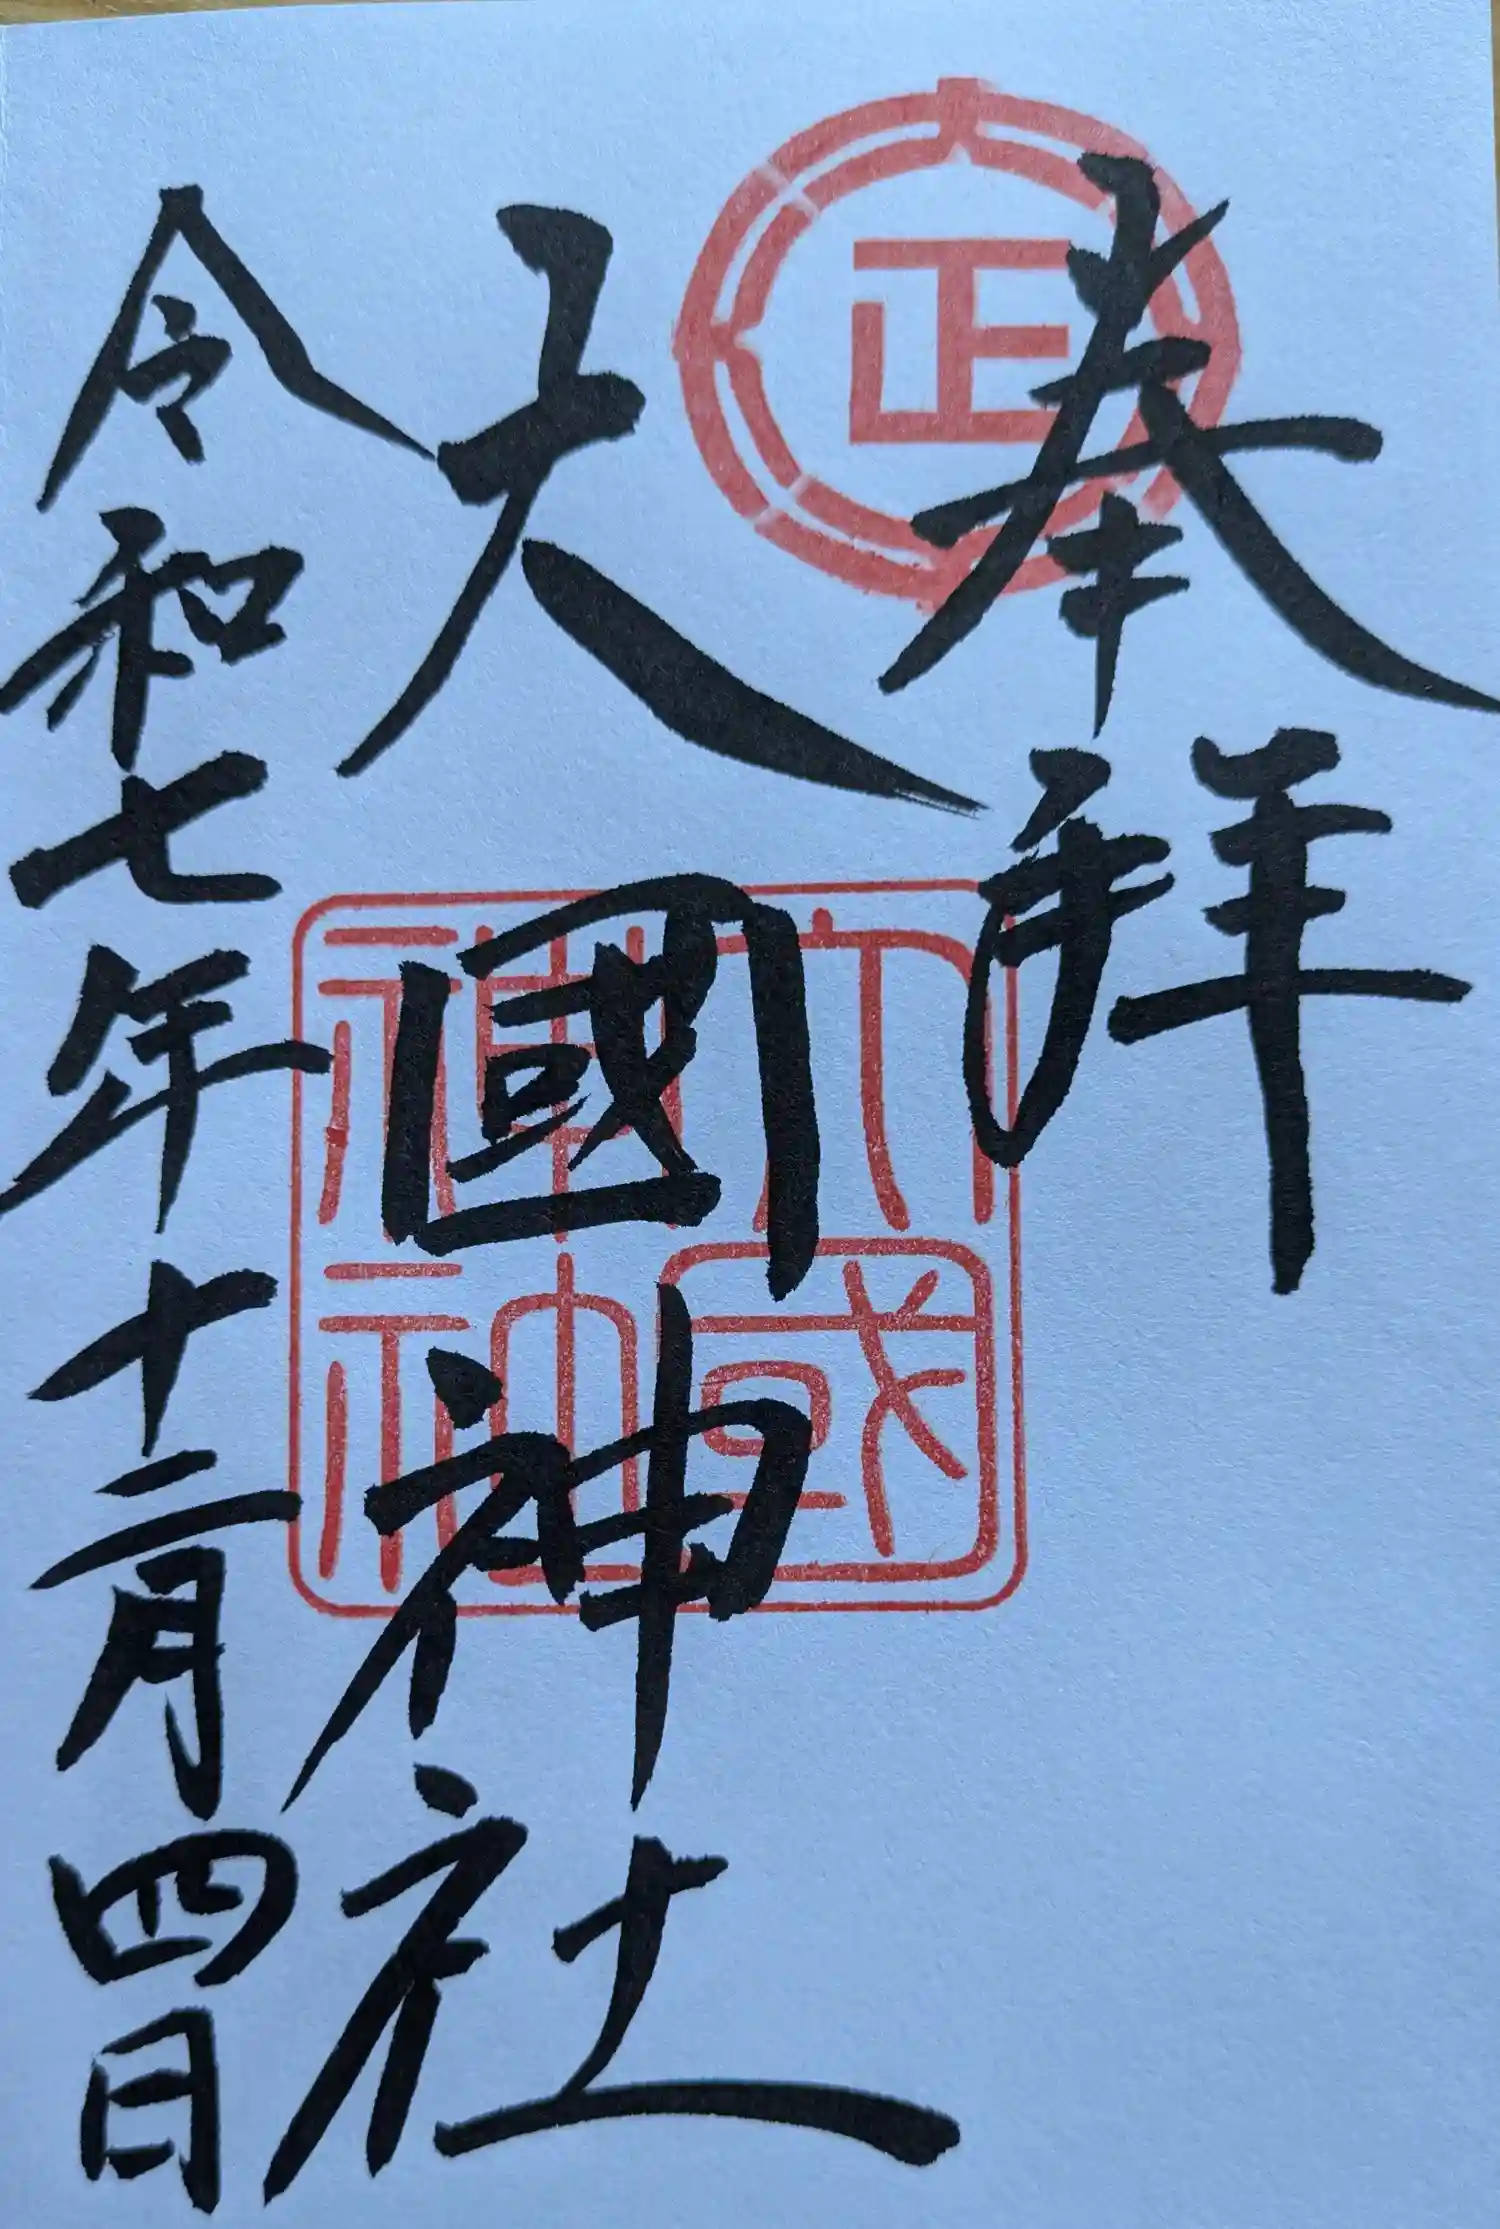 奉拜
大國神社
令和七年十二月四日
正
大國神社